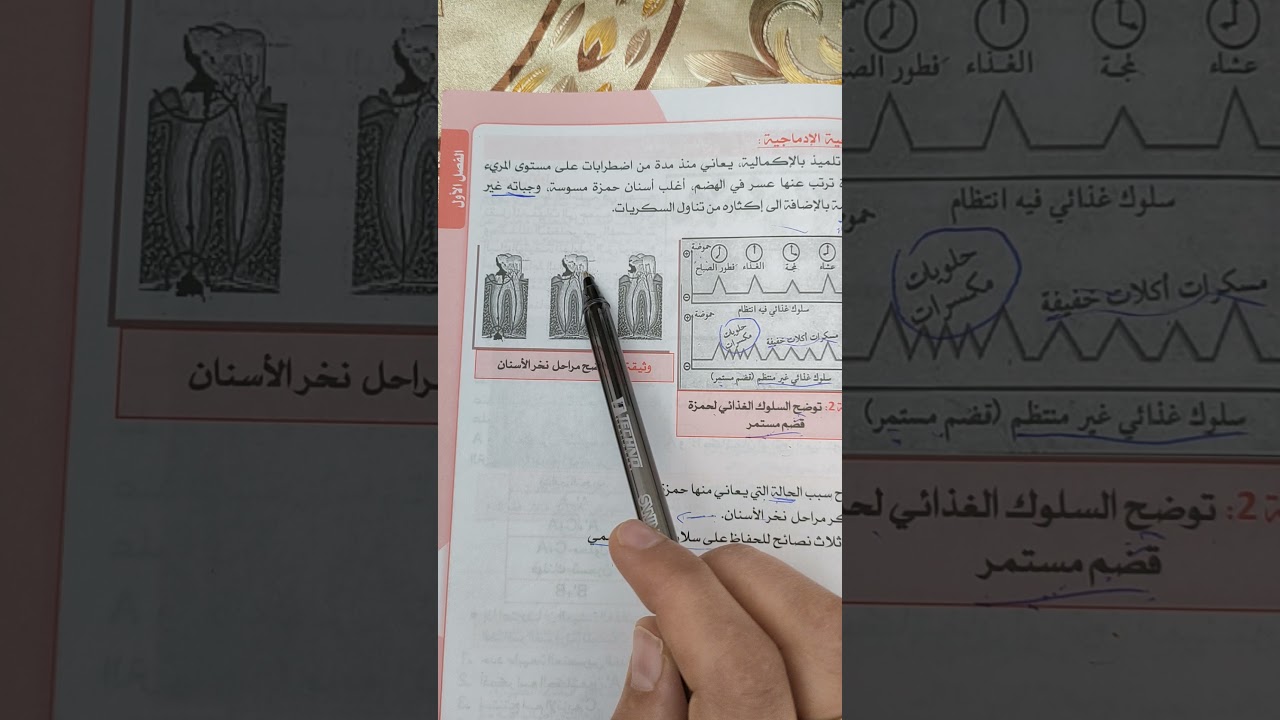 الفصل الأول
ية الإدماجية :
تلميذ بالإكمالية، يعاني منذ مدة من اضطرابات على مستوى المريء
ة ترتب عنها عسر في الهضم. أغلب أسنان حمزة مسوسة، وجباته غير
ة بالإضافة الى إكثاره من تناول السكريات.
حموضة
فطور الصباح الغذاء لمجة عشاء
سلوك غذائي فيه انتظام
حموضة
حلويات مكسرات
مسكرات أكلات خفيفة
سلوك غذائي غير منتظم (قضم مستمر)
2: توضح السلوك الغذائي لحمزة
قضم مستمر
وثيقة
ضح مراحل نخر الأسنان
ح سبب الحالة التي يعاني منها حمزة
كر مراحل نخر الأسنان.
ثلاث نصائح للحفاظ على سلا
TECHNO
فطور الص
الغذاء
لمجة
عشاء
سلوك غذائي فيه انتظام
حلويات
مكسرات
مسكرات أكلات خفيفة
سلوك غذائي غير منتظم (قضم مستمر)
2: توضح السلوك الغذائي لح
قضم مستمر
مراحل نخر الأسنان